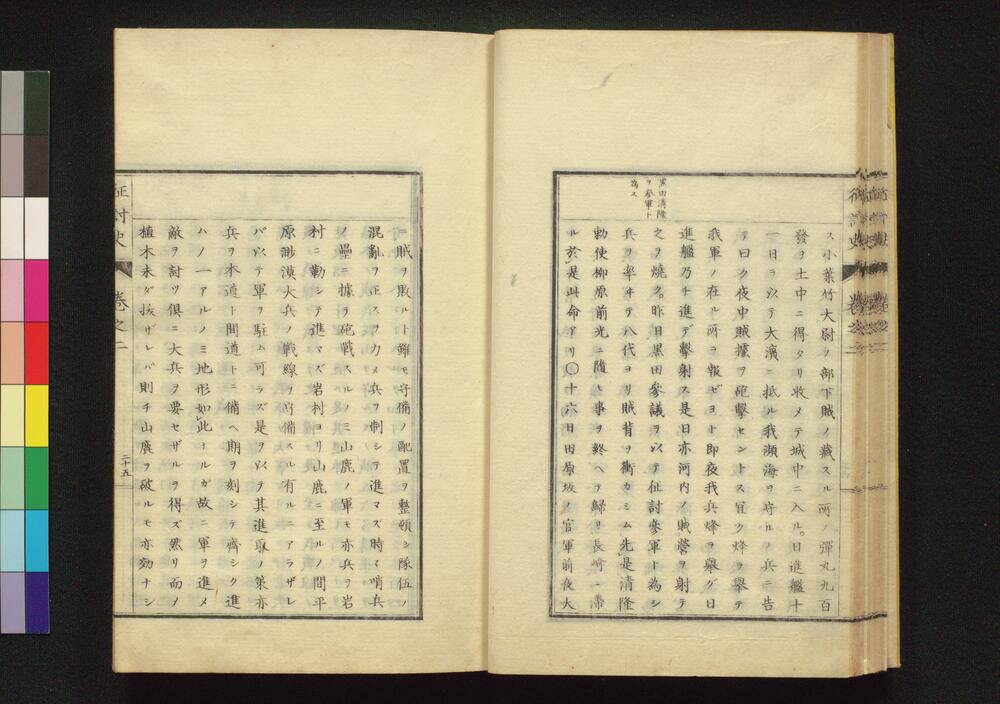 黒田清隆
ヲ參軍ト
為ス
ス小葉竹大尉ノ部下賊ノ藏スル所ノ彈丸九百
發ヲ土中ニ得タリ收メテ城中ニ入ル。日進艦十
一日ヲ以テ大濱ニ抵ル我瀬海ヲ守ルノ兵ニ告
テ曰ク夜中賊據ヲ砲擊セントス宜ク烽ヲ擧テ
我軍ノ在ル所ヲ報ゼヨト即夜我兵烽ヲ擧グ日
進艦乃チ進デ擊射ス是日亦河内ノ賊營ヲ射テ
之ヲ燒ク。昨日黒田參議ヲ以テ征討參軍ト為シ
兵ヲ率ヰテ八代ヨリ賊背ヲ衝カシム先是清隆
勅使柳原前光ニ隨ヒ事ヲ終ヘテ歸リ長﨑ニ滯
ル於是此命アリ〇十六日田原坂ノ官軍前夜大
ニ賊ヲ敗ルト雖モ守備ノ配置ヲ整頓シ隊伍ノ
混亂ヲ正スヲカメ兵ヲ制シテ進マズ時々哨兵
ノ壘ニ據ラ砲戰スルノミ山鹿ノ軍モ亦兵ヲ岩
村ニ勒シテ進マズ岩村ヨリ山鹿ニ至ルノ間平
原渺漠大兵ノ戰線ヲ守備スル有ルニアラザレ
バ以テ軍ヲ駐ム可ラズ是ヲ以テ其進取ノ策亦
兵ヲ本道ト間道トニ備ヘ期ヲ刻シテ齊シク進
ハノ一アルノミ地形如此ナルガ故ニ軍ヲ進メ
敵ヲ討ツ俱ニ大兵ヲ要セザルヲ得ズ然リ而メ
植木未ダ拔ザレバ則チ山鹿ヲ破ルモ亦効ナシ
征討史
卷之二
二十五